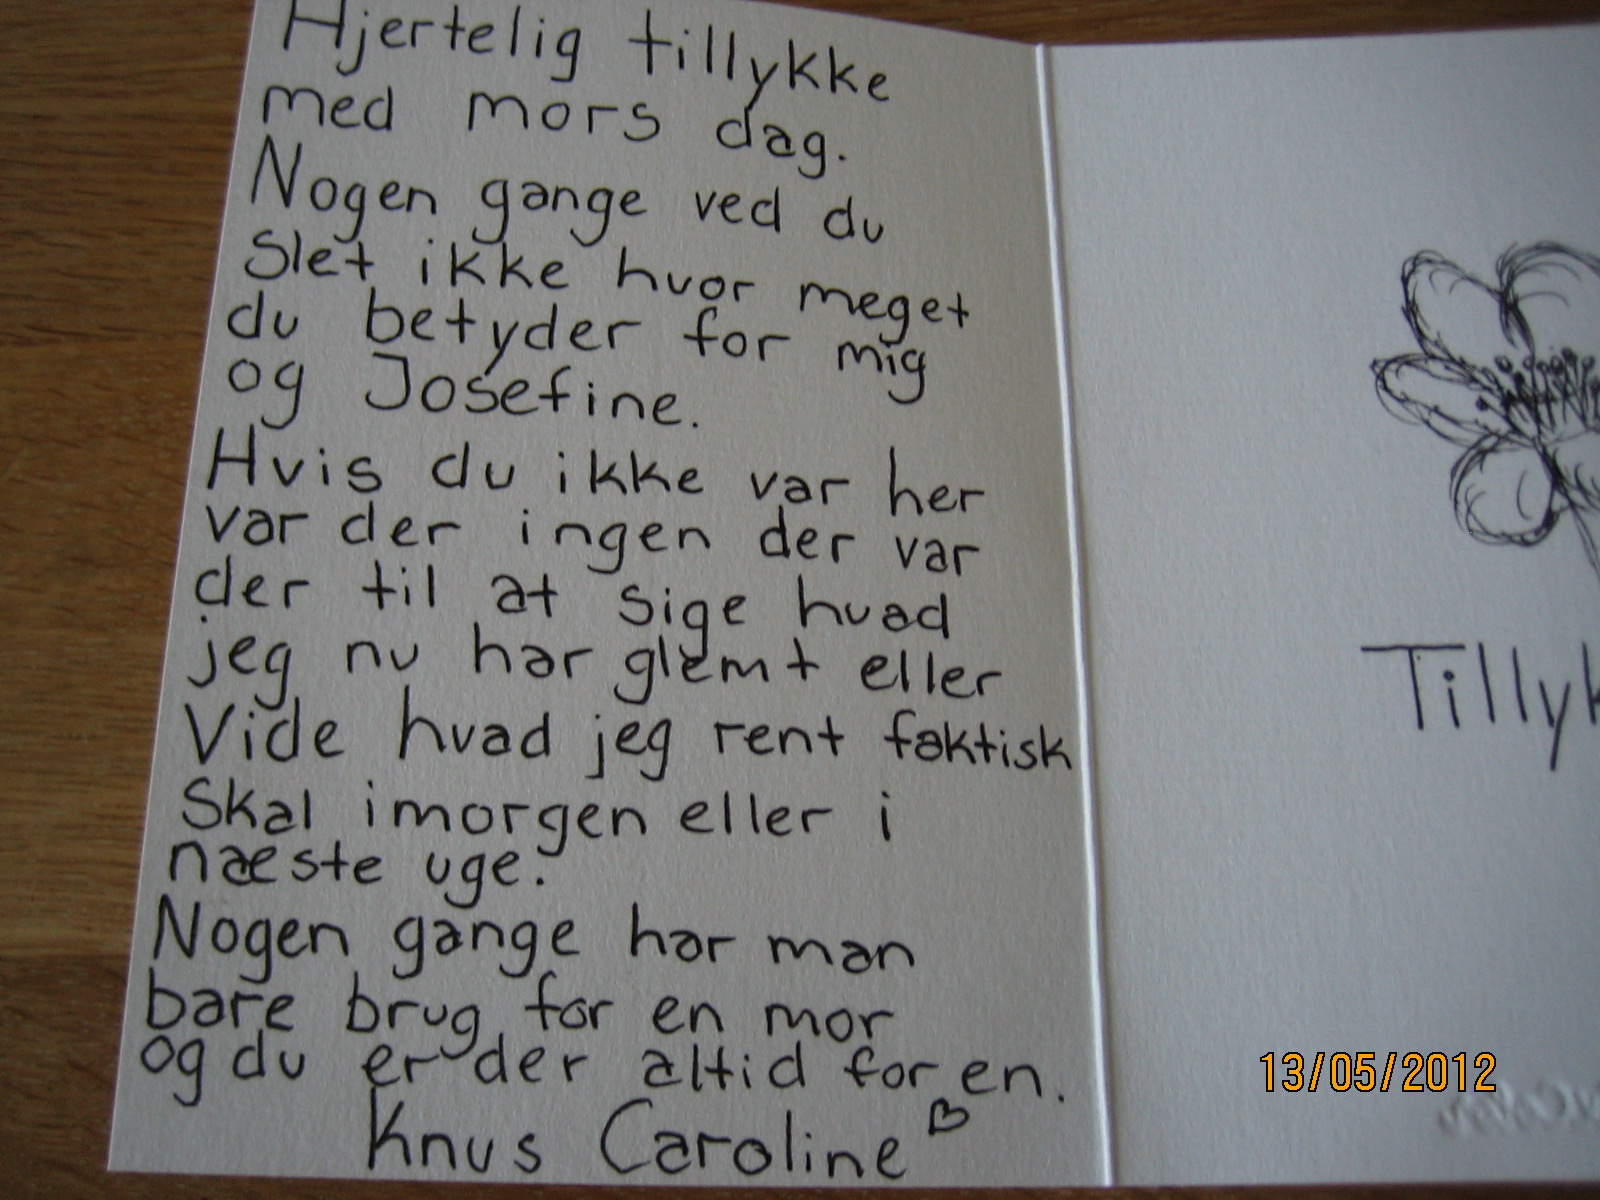 Hjertelig tillykke
med mors dag.
Nogen gange ved du
Slet ikke hvor meget
du betyder for mig
og Josefine.
Hvis du ikke var her
var der ingen der var
der til at sige hvad
jeg nu har glemt eller
Vide hvad jeg rent faktisk
Skal imorgen eller i
næste uge.
Nogen gange har man
bare brug for en mor
og du er der altid for en.
Knus Caroline
Tillyk
13/05/2012